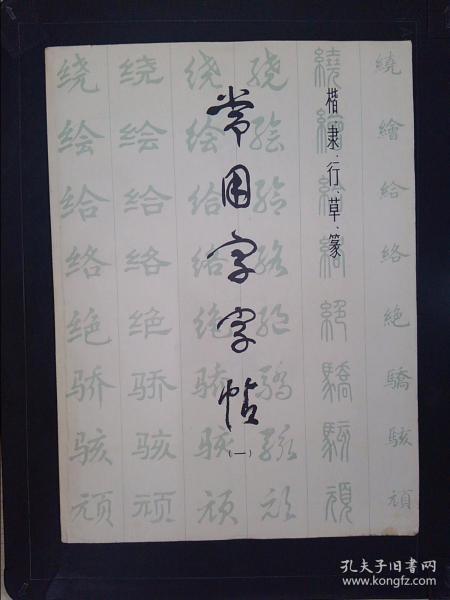 楷、隶、行、草、篆
常用字字帖
(一)
绕 绕 绕 绕 繞 繞
绘 绘 绘 绘 繪 繪
给 给 给 给 給 給
络 络 络 络 絡 絡
绝 绝 绝 绝 絕 絶
骄 骄 骄 驕 驕 驕
骇 骇 骇 骇 駭 駭
顽 顽 顽 顽 頑 頑
孔夫子旧书网
www.kongfz.com